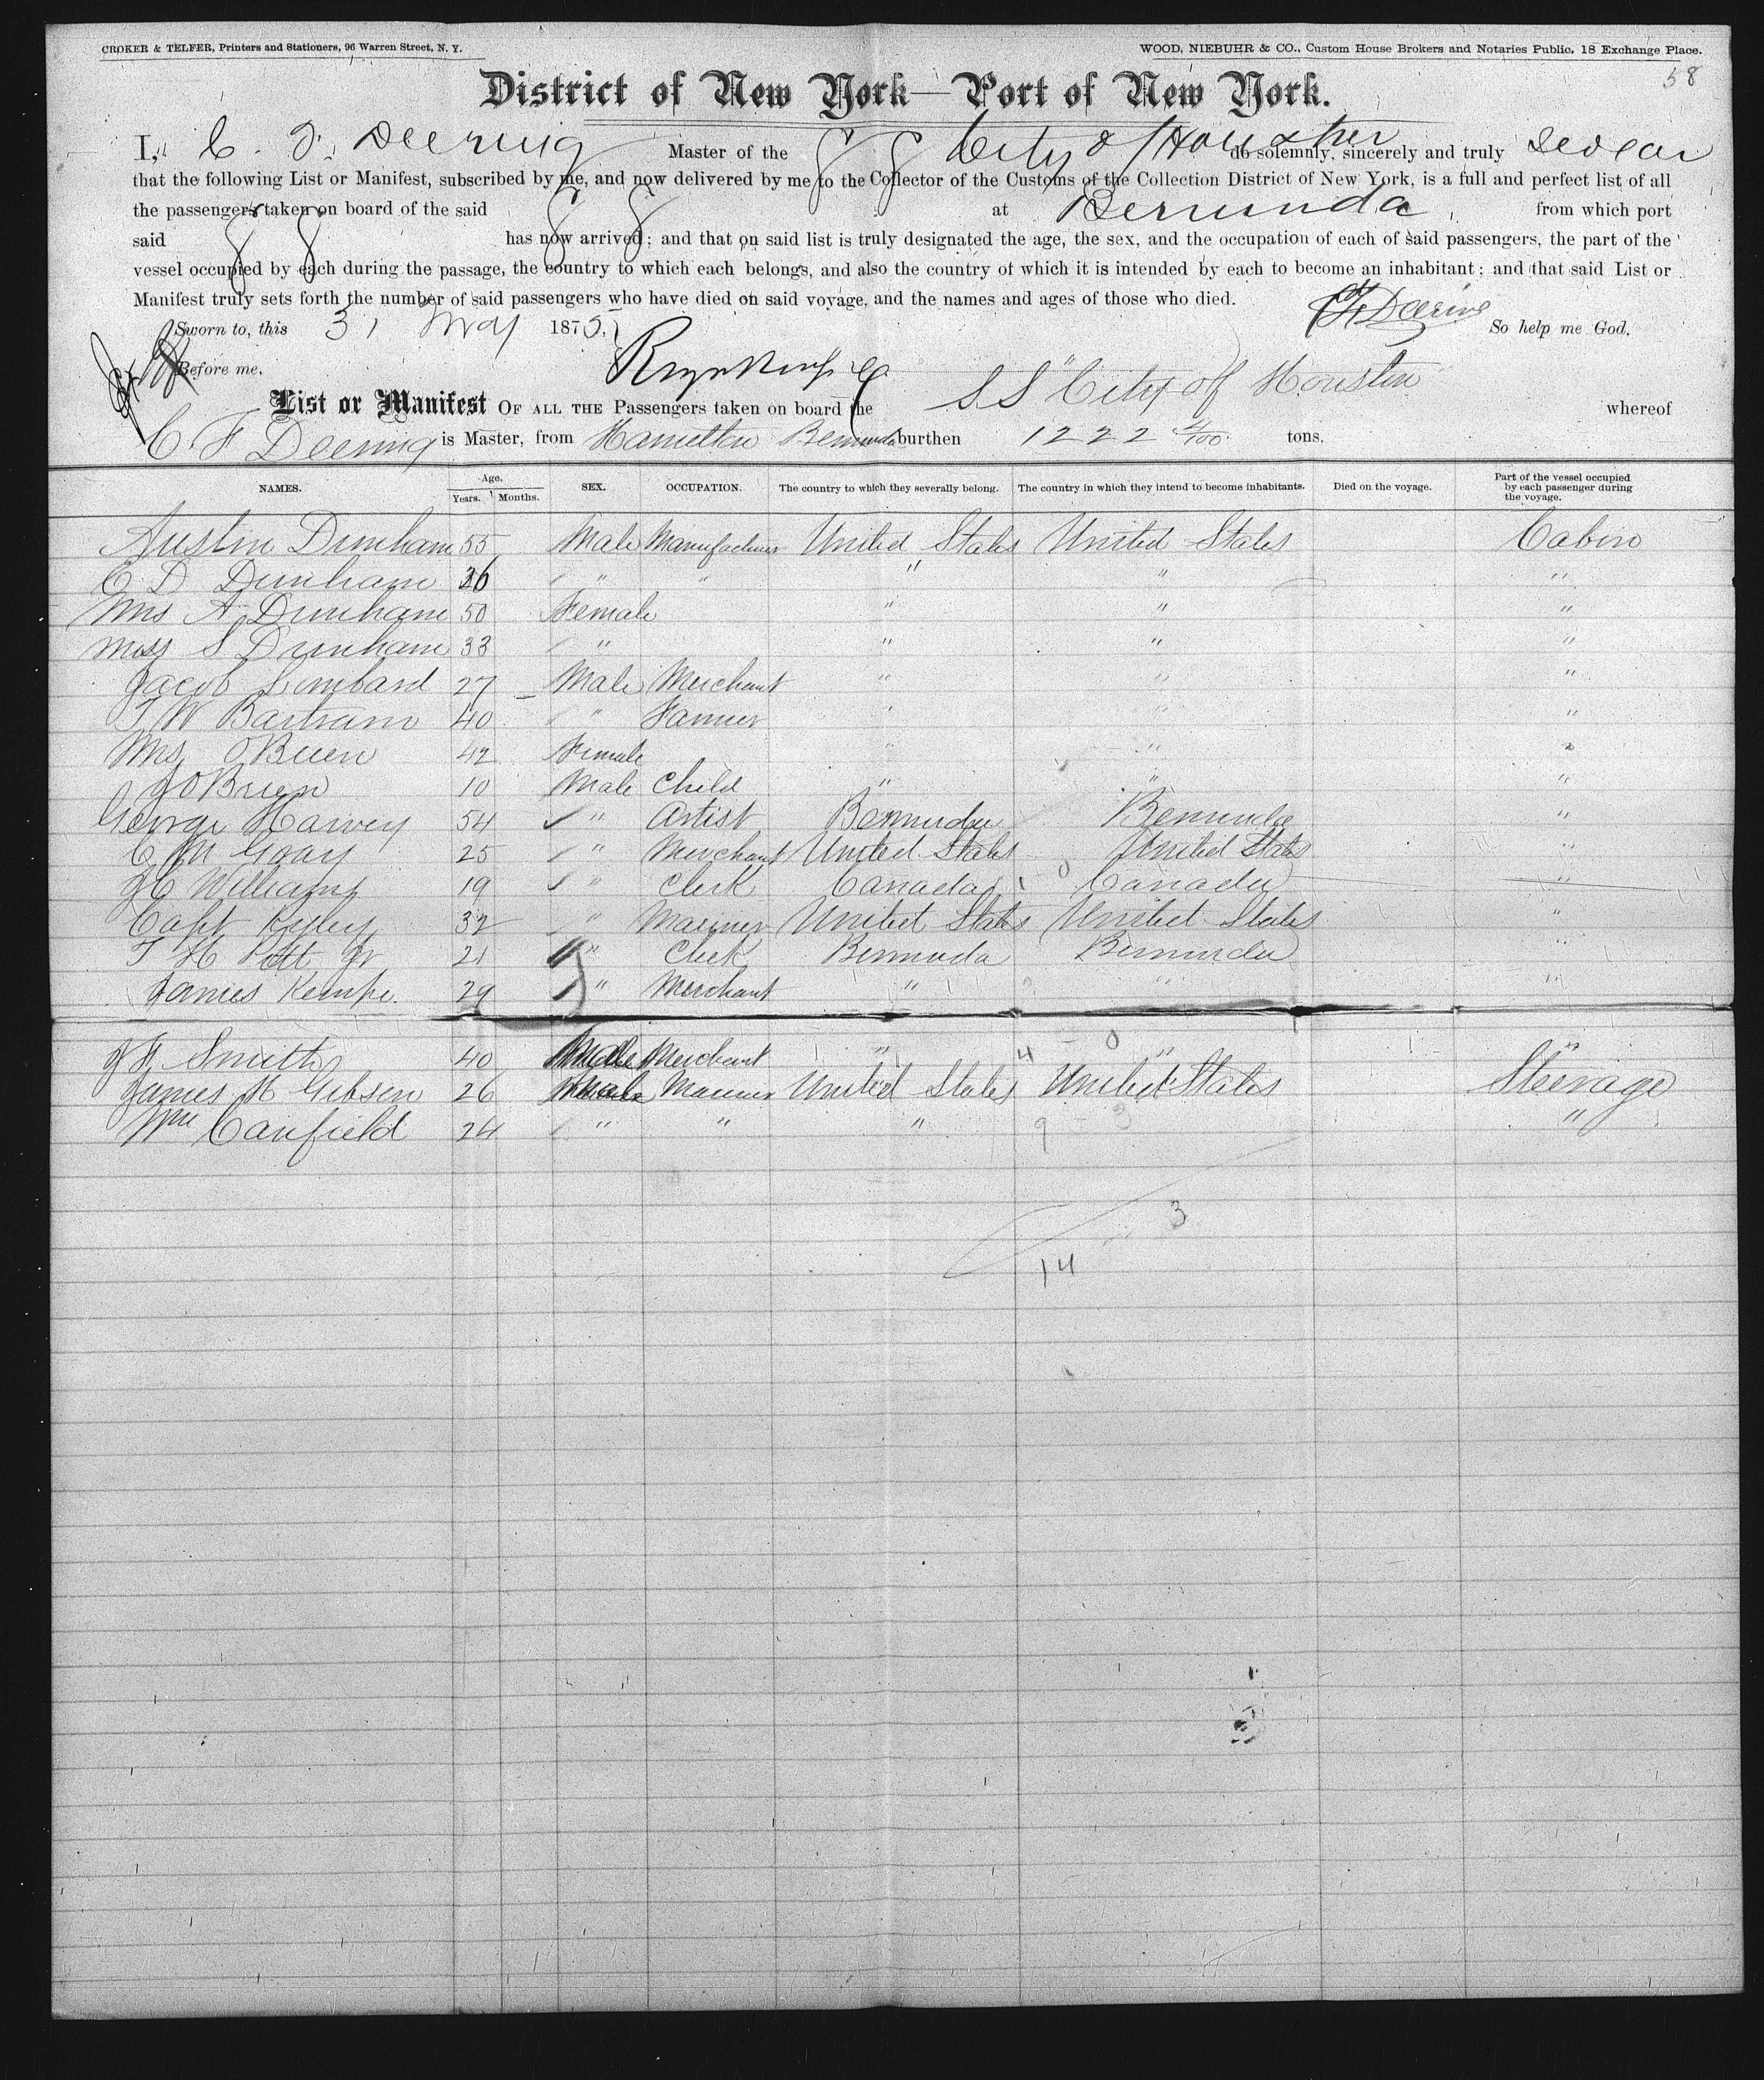 CROKER & TELFER, Printers and Stationers, 96 Warren Street, N. Y. WOOD, NIEBUHR & CO., Custom House Brokers and Notaries Public, 18 Exchange Place.
58
District of New York—Port of New York.
I, C. F. Deering Master of the SS City of Houston do solemnly, sincerely and truly Swear
that the following List or Manifest, subscribed by me, and now delivered by me to the Collector of the Customs of the Collection District of New York, is a full and perfect list of all
the passengers taken on board of the said SS at Bermuda from which port
said SS has now arrived; and that on said list is truly designated the age, the sex, and the occupation of each of said passengers, the part of the
vessel occupied by each during the passage, the country to which each belongs, and also the country of which it is intended by each to become an inhabitant; and that said List or
Manifest truly sets forth the number of said passengers who have died on said voyage, and the names and ages of those who died.
Sworn to, this 31 May 1875. CF Deering So help me God.
Before me,
List or Manifest OF ALL THE Passengers taken on board the SS "City of Houston whereof
C F Deering is Master, from Hamilton Bermuda burthen 1222 4/100 tons.
NAMES. Age. Years. Months. SEX. OCCUPATION. The country to which they severally belong. The country in which they intend to become inhabitants. Died on the voyage. Part of the vessel occupied by each passenger during the voyage.
Austin Dunham 55 Male Manufacturer United States United States Cabin
C D Dunham 26 " " " " "
Mrs A Dunham 50 Female " " "
Miss S Dunham 33 " " " "
Jacob Lombard 27 Male Merchant " " "
T W Bartram 40 " Farmer " " "
Mrs O'Brien 42 Female " " "
J O'Brien 10 Male Child " " "
George Harvey 54 " Artist Bermuda Bermuda "
C M Gray 25 " Merchant United States United States "
H C Williams 19 " Clerk Canada 1 0 Canada "
Capt 32 " Mariner United States United States "
T H Pitt Jr 21 " Clerk Bermuda Bermuda "
James Kempe. 29 " Merchant " " "
J F Smith 40 Male Merchant " 4 - 0 " "
James H Gibson 26 Male Mariner United States United States Steerage
Wm Canfield 24 " " " 9 3 "
3
14